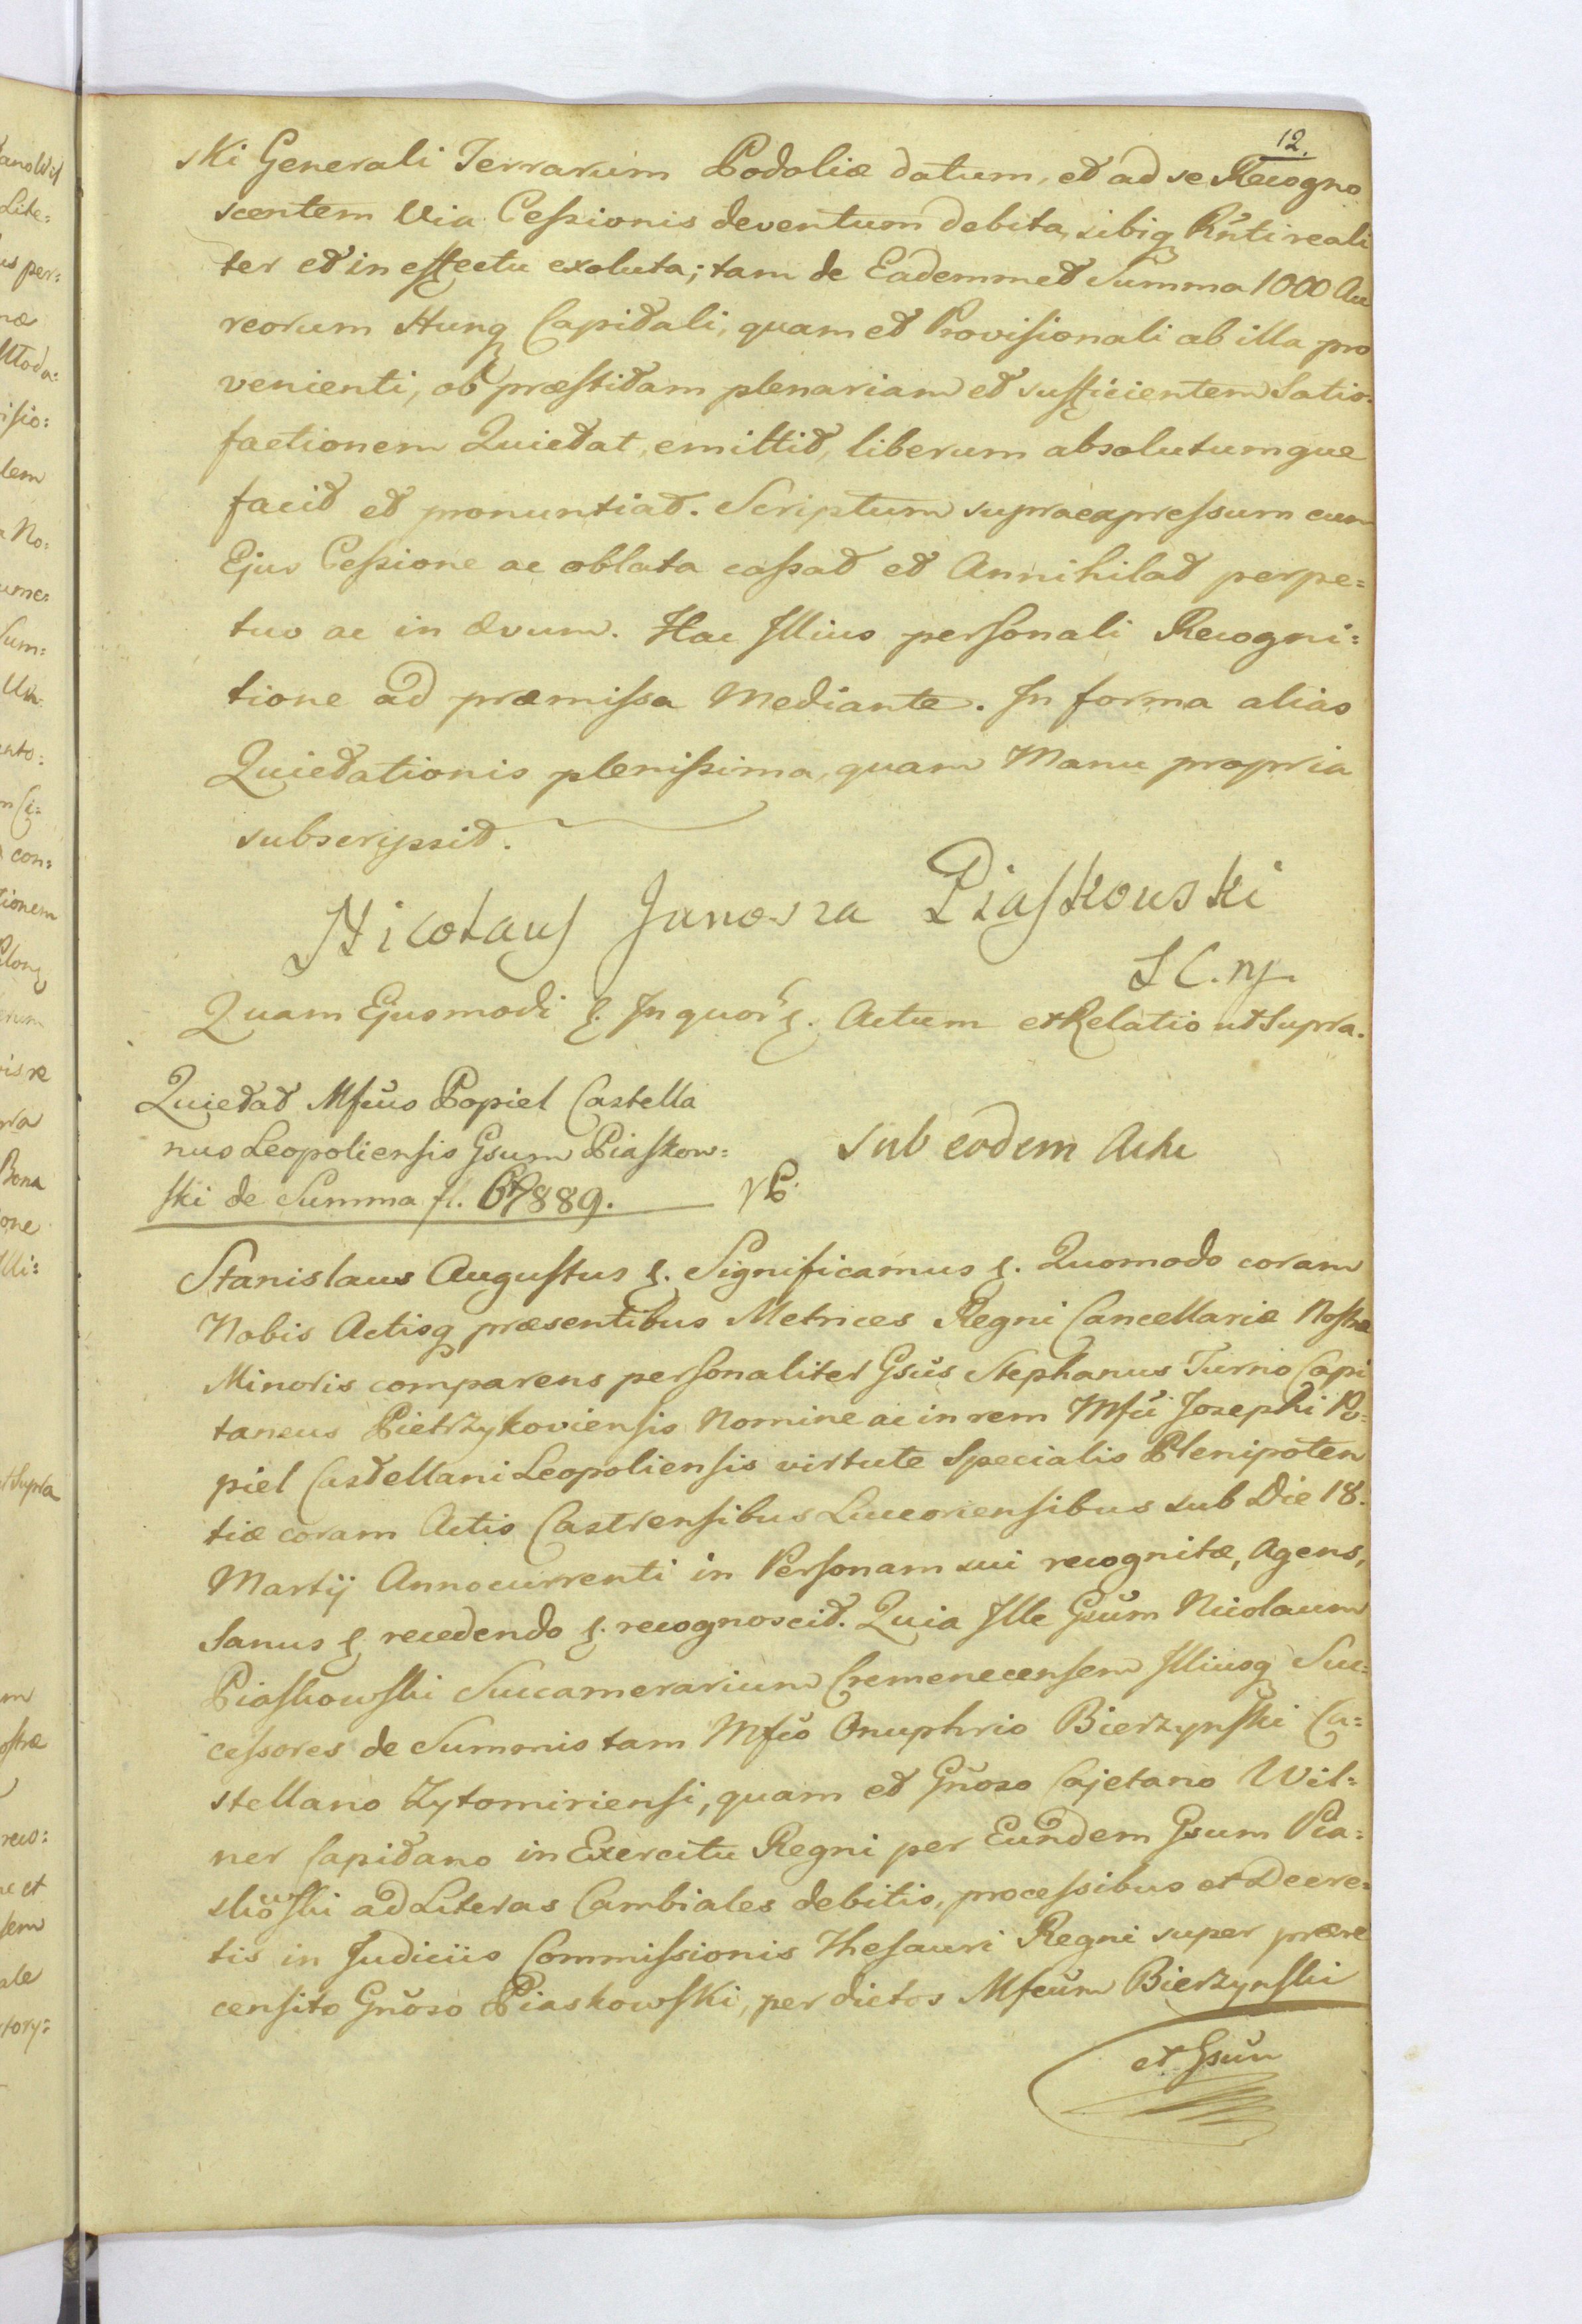 12.
ski Generali Terrarum Podoliæ datum, et ad se Recogno
scentem Via Cessionis deventum debita, sibiq Rnti reali
ter et in effectu exoluta; tam de Eademmet Summa 1000 Au
reorum Hung Capitali, quam et Provisionali ab illa pro
venienti, ob præstitam plenariam et sufficientem Satis-
factionem Quietat, emittit, liberum absolutumque
facit et pronuntiat. Scriptum supraexpressum cum
Ejus Cessione ac oblata cassat et Annihilat perpe=
tuo ac in ævum. Hac Illius personali Recogni=
tione ad præmissa Mediante. In forma alias
Quietationis plenissima, quam Manu propria
subscripsit.
Nicolaus Junosza Piaskowski
S C. mp.
Quam Ejusmodi &. In quor &. Actum et Relatio ut Supra.
Quietat Mfcus Popiel Castella
nus Leopoliensis Gsum Piaskow=
ski de Summa fl. 67889.
sub eodem Actu
Stanislaus Augustus &. Significamus &. Quomodo coram
Nobis Actisq præsentibus Metrices Regni Cancellariæ Nostræ
Minoris comparens personaliter Gsus Stephanus Turno Capi
taneus Pietrzykoviensis Nomine ac in rem Mfci Josephi Po=
piel Castellani Leopoliensis virtute Specialis Plenipoten
tiæ coram Actis Castrensibus Luceoriensibus sub Die 18.
Martij Anno currenti in Personam sui recognitæ, Agens,
Sanus &. recedendo &. recognoscit. Quia Ille Gsum Nicolaum
Piaskowski Succamerarium Cremenecensem Illiusq Suc=
cessores de Summis tam Mfco Onuphrio Bierzynski Ca=
stellano Zytomiriensi, quam et Gnoso Cajetano Wil=
ner Capitano in Exercitu Regni per Eundem Gsum Pia=
skowski ad Literas Cambiales debitis, processibus et Decre=
tis in Judiciis Commissionis Thesauri Regni super prære
censito Gnoso Piaskowski, per dictos Mfcum Bierzynski
et Gsum